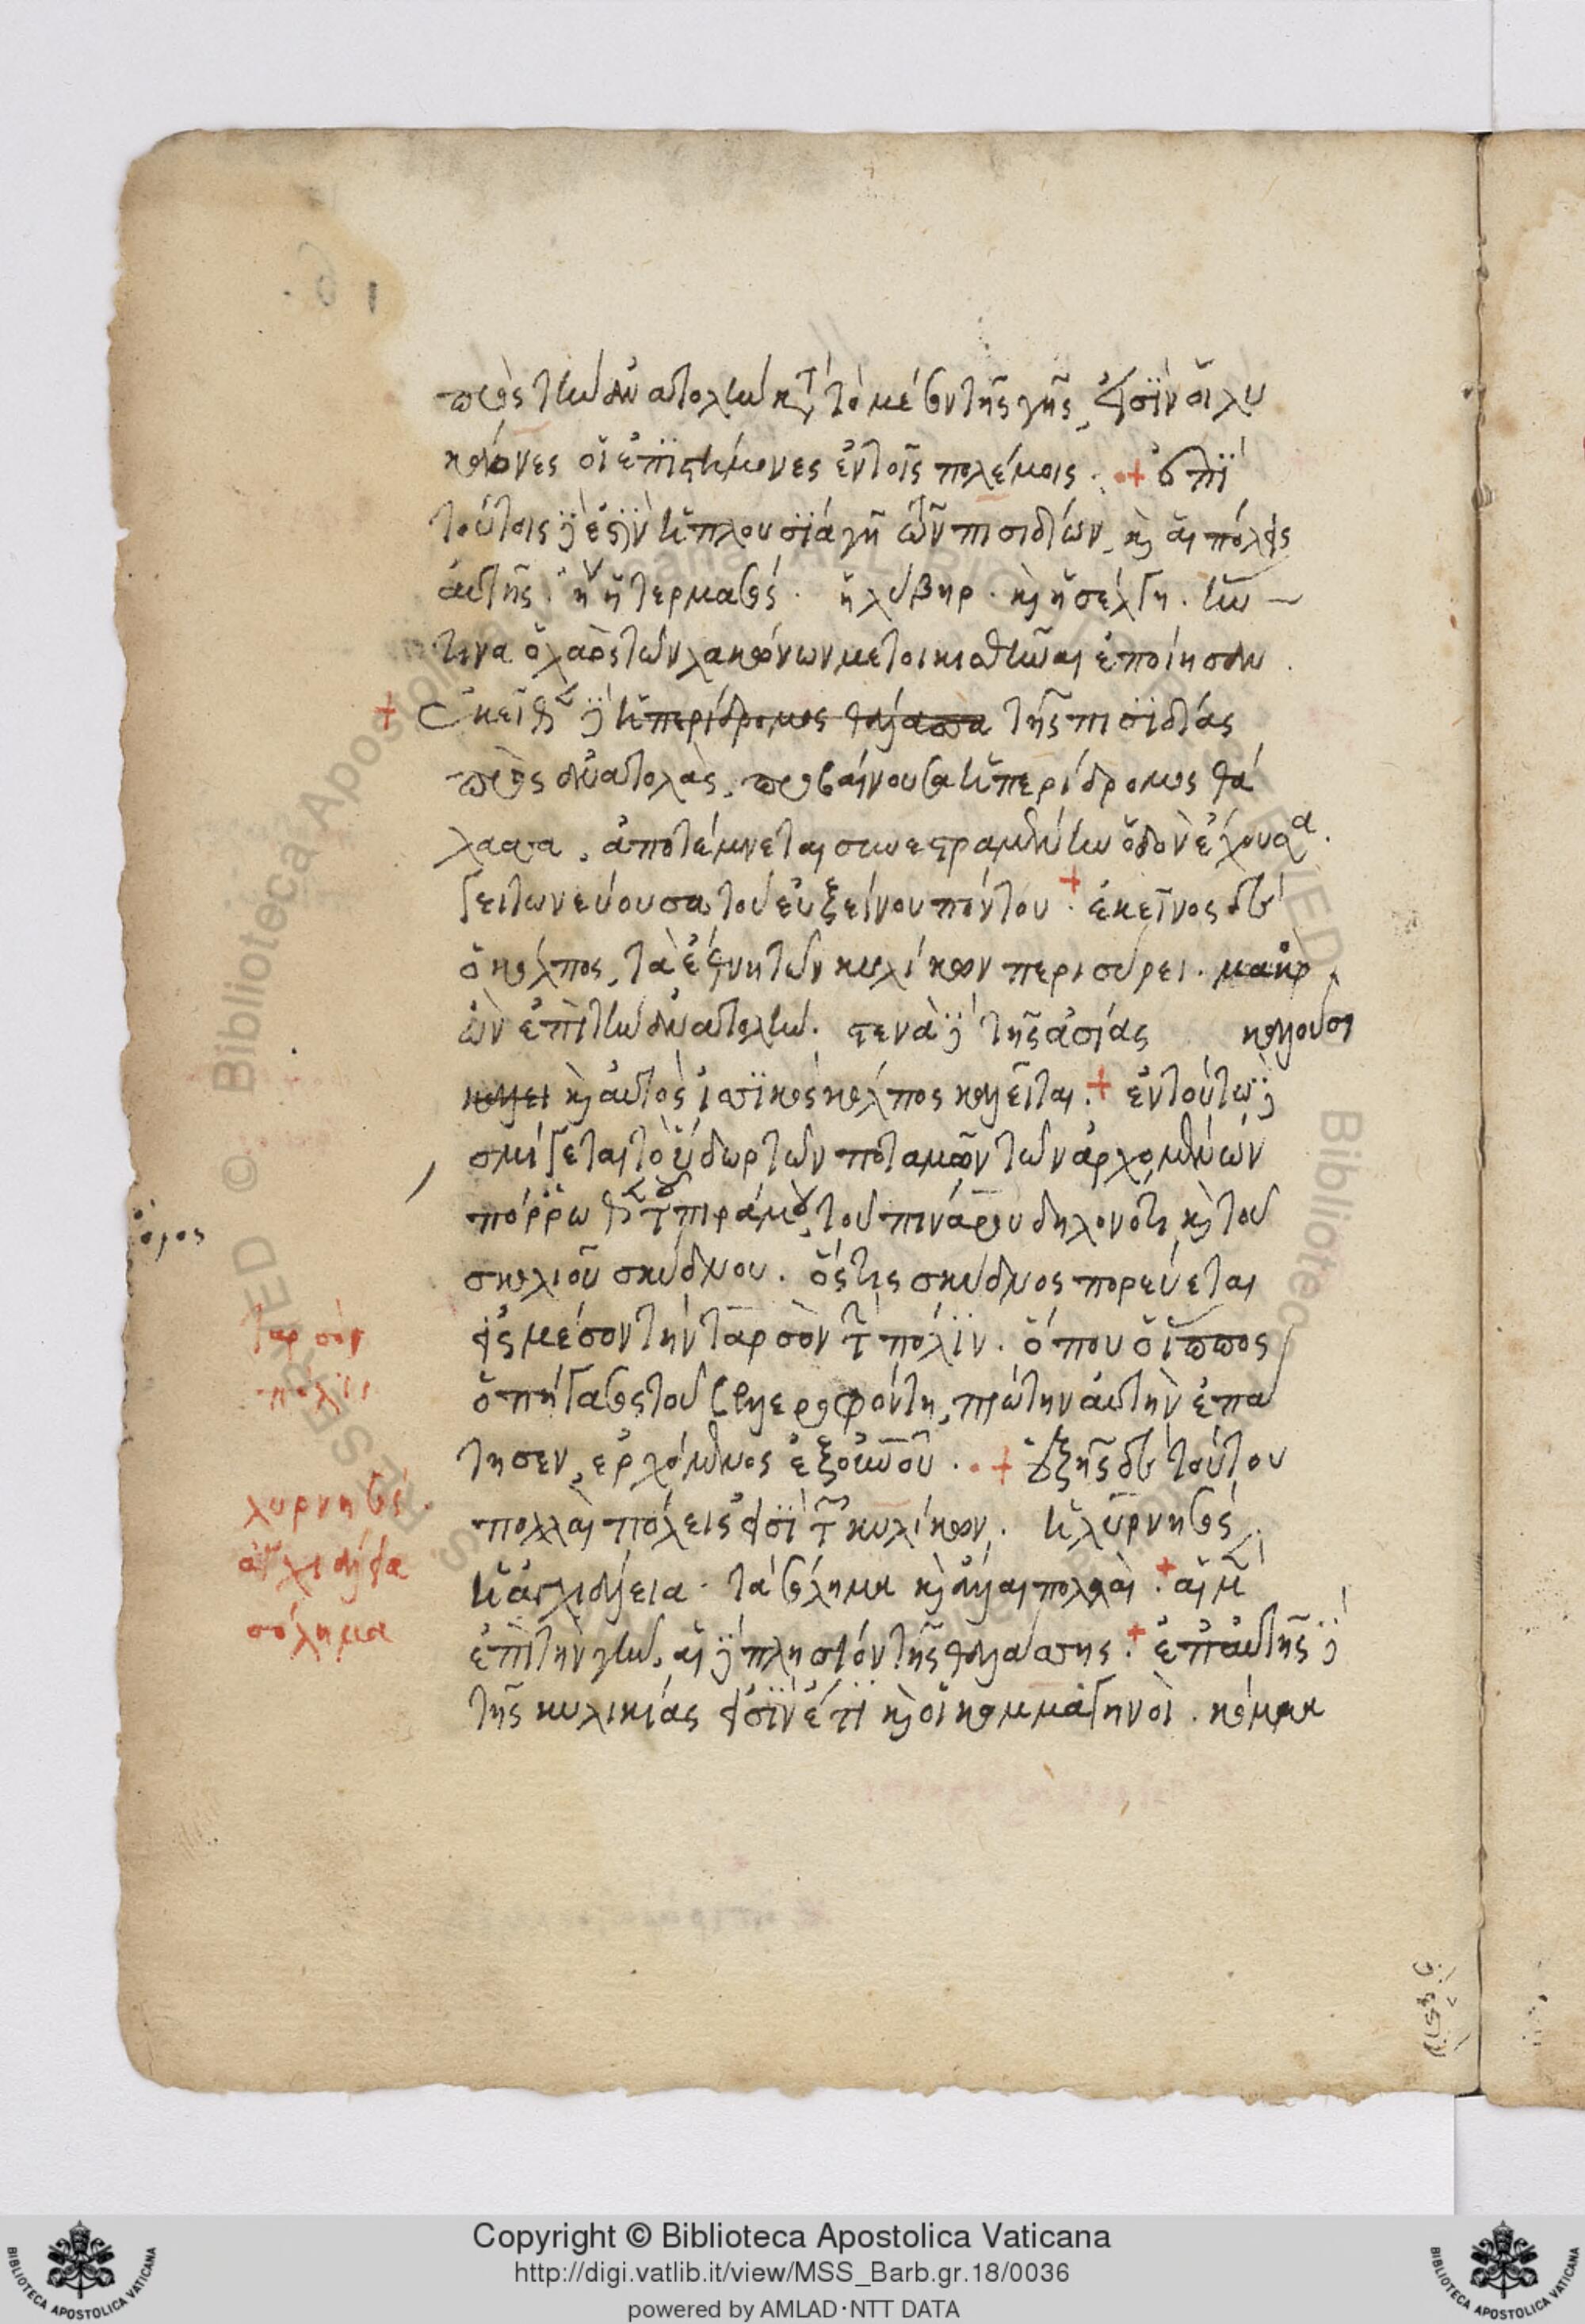 πρὸς τὴν ἀνατολὴν κατὰ τὸ μέσον τῆς γῆς, εἰσὶν οἱ λυ
κάονες οἱ ἐπιστήμονες ἐν τοῖς πολέμοις. + ἐπὶ
τούτοις δέ ἐστὶν ἡ πλουσία γῆ τῶν πισιδίων, καὶ αἱ πόλεις
αὐτῆς. ἡ τερμασός. ἡ λύβηρ. καὶ ἡ σέλγη. ἣν
τινα ὁ λαὸς τῶν λακώνων μετοικισθῆναι ἐποίησαν.
+ ἐκεῖθεν δὲ ἡ περίδρομος θάλασσα τῆς πισιδίας
πρὸς ἀνατολὰς, προβαίνουσα ἡ περίδρομος θά
λασσα, ἀποτέμνεται συνεστραμμένην ὁδὸν ἔχουσα.
γειτωνεύουσα τοῦ εὐξείνου πόντου + ἐκεῖνος δὲ
ὁ κόλπος, τὰ ἔθνη τῶν κυλίκων περισύρει. μακρ
ὸν ἐπὶ τὴν ἀνατολήν. στενὰ δὲ τῆς ἀσίας καλοῦσι
καλεῖ καὶ αὐτὸς ἰσσικὸς κόλπος καλεῖται. + ἐν τούτω δὲ
σμίγεται τὸ ὕδωρ τῶν ποταμῶν τῶν ἀρχομένων
πόρρωθεν τοῦ πιράμου, τοῦ πινάρου δηλονότι καὶ τοῦ
σκολιοῦ σκύδνου. ὅστις σκύδνος πορεύεται
εἰς μέσον τὴν ταρσὸν τὴν πόλιν. ὅπου ὁ ἵππος
ὁ πήγασος τοῦ βελλεροφόντη, πρώτην αὐτὴν ἐπά
τησεν, ἐρχόμενος ἐξ οὐρανοῦ. + ἑξῆς δὲ τούτου
πολλαὶ πόλεις εἰσὶ τῶν κυλίκων. ἡ λύρνησός,
ἡ ἀγχιάλεια. τὰ σόλημα καὶ ἄλλαι πολλαί. + αἱ μὲν
ἐπὶ τὴν γῆν, αἱ δὲ πλησίον τῆς θαλάσσης. + ἐπ' αὐτῆς δὲ
τῆς κυλικίας εἰσὶν ἔτι καὶ οἱ κομμαγηνοὶ. κόμακ
ταρσὸν
πόλις
λυρνησός.
ἀγχιάλεια
σόλημα
Copyright © Biblioteca Apostolica Vaticana
http://digi.vatlib.it/view/MSS_Barb.gr.18/0036
powered by AMLAD·NTT DATA